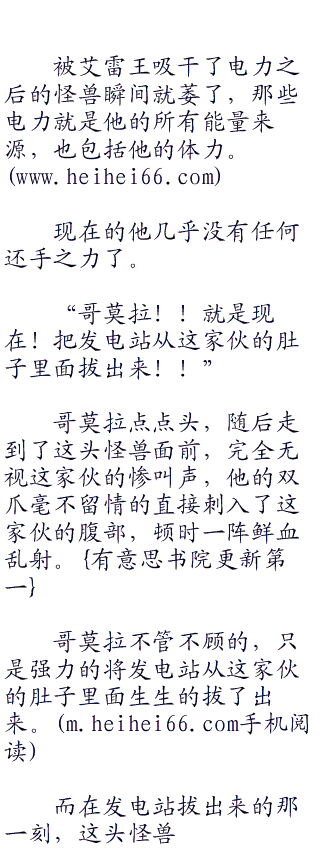 被艾雷王吸干了电力之
后的怪兽瞬间就萎了，那些
电力就是他的所有能量来
源，也包括他的体力。
(www.heihei66.com)
现在的他几乎没有任何
还手之力了。
“哥莫拉！！就是现
在！把发电站从这家伙的肚
子里面拔出来！！”
哥莫拉点点头，随后走
到了这头怪兽面前，完全无
视这家伙的惨叫声，他的双
爪毫不留情的直接刺入了这
家伙的腹部，顿时一阵鲜血
乱射。{有意思书院更新第
一}
哥莫拉不管不顾的，只
是强力的将发电站从这家伙
的肚子里面生生的拔了出
来。(m.heihei66.com手机阅
读)
而在发电站拔出来的那
一刻，这头怪兽